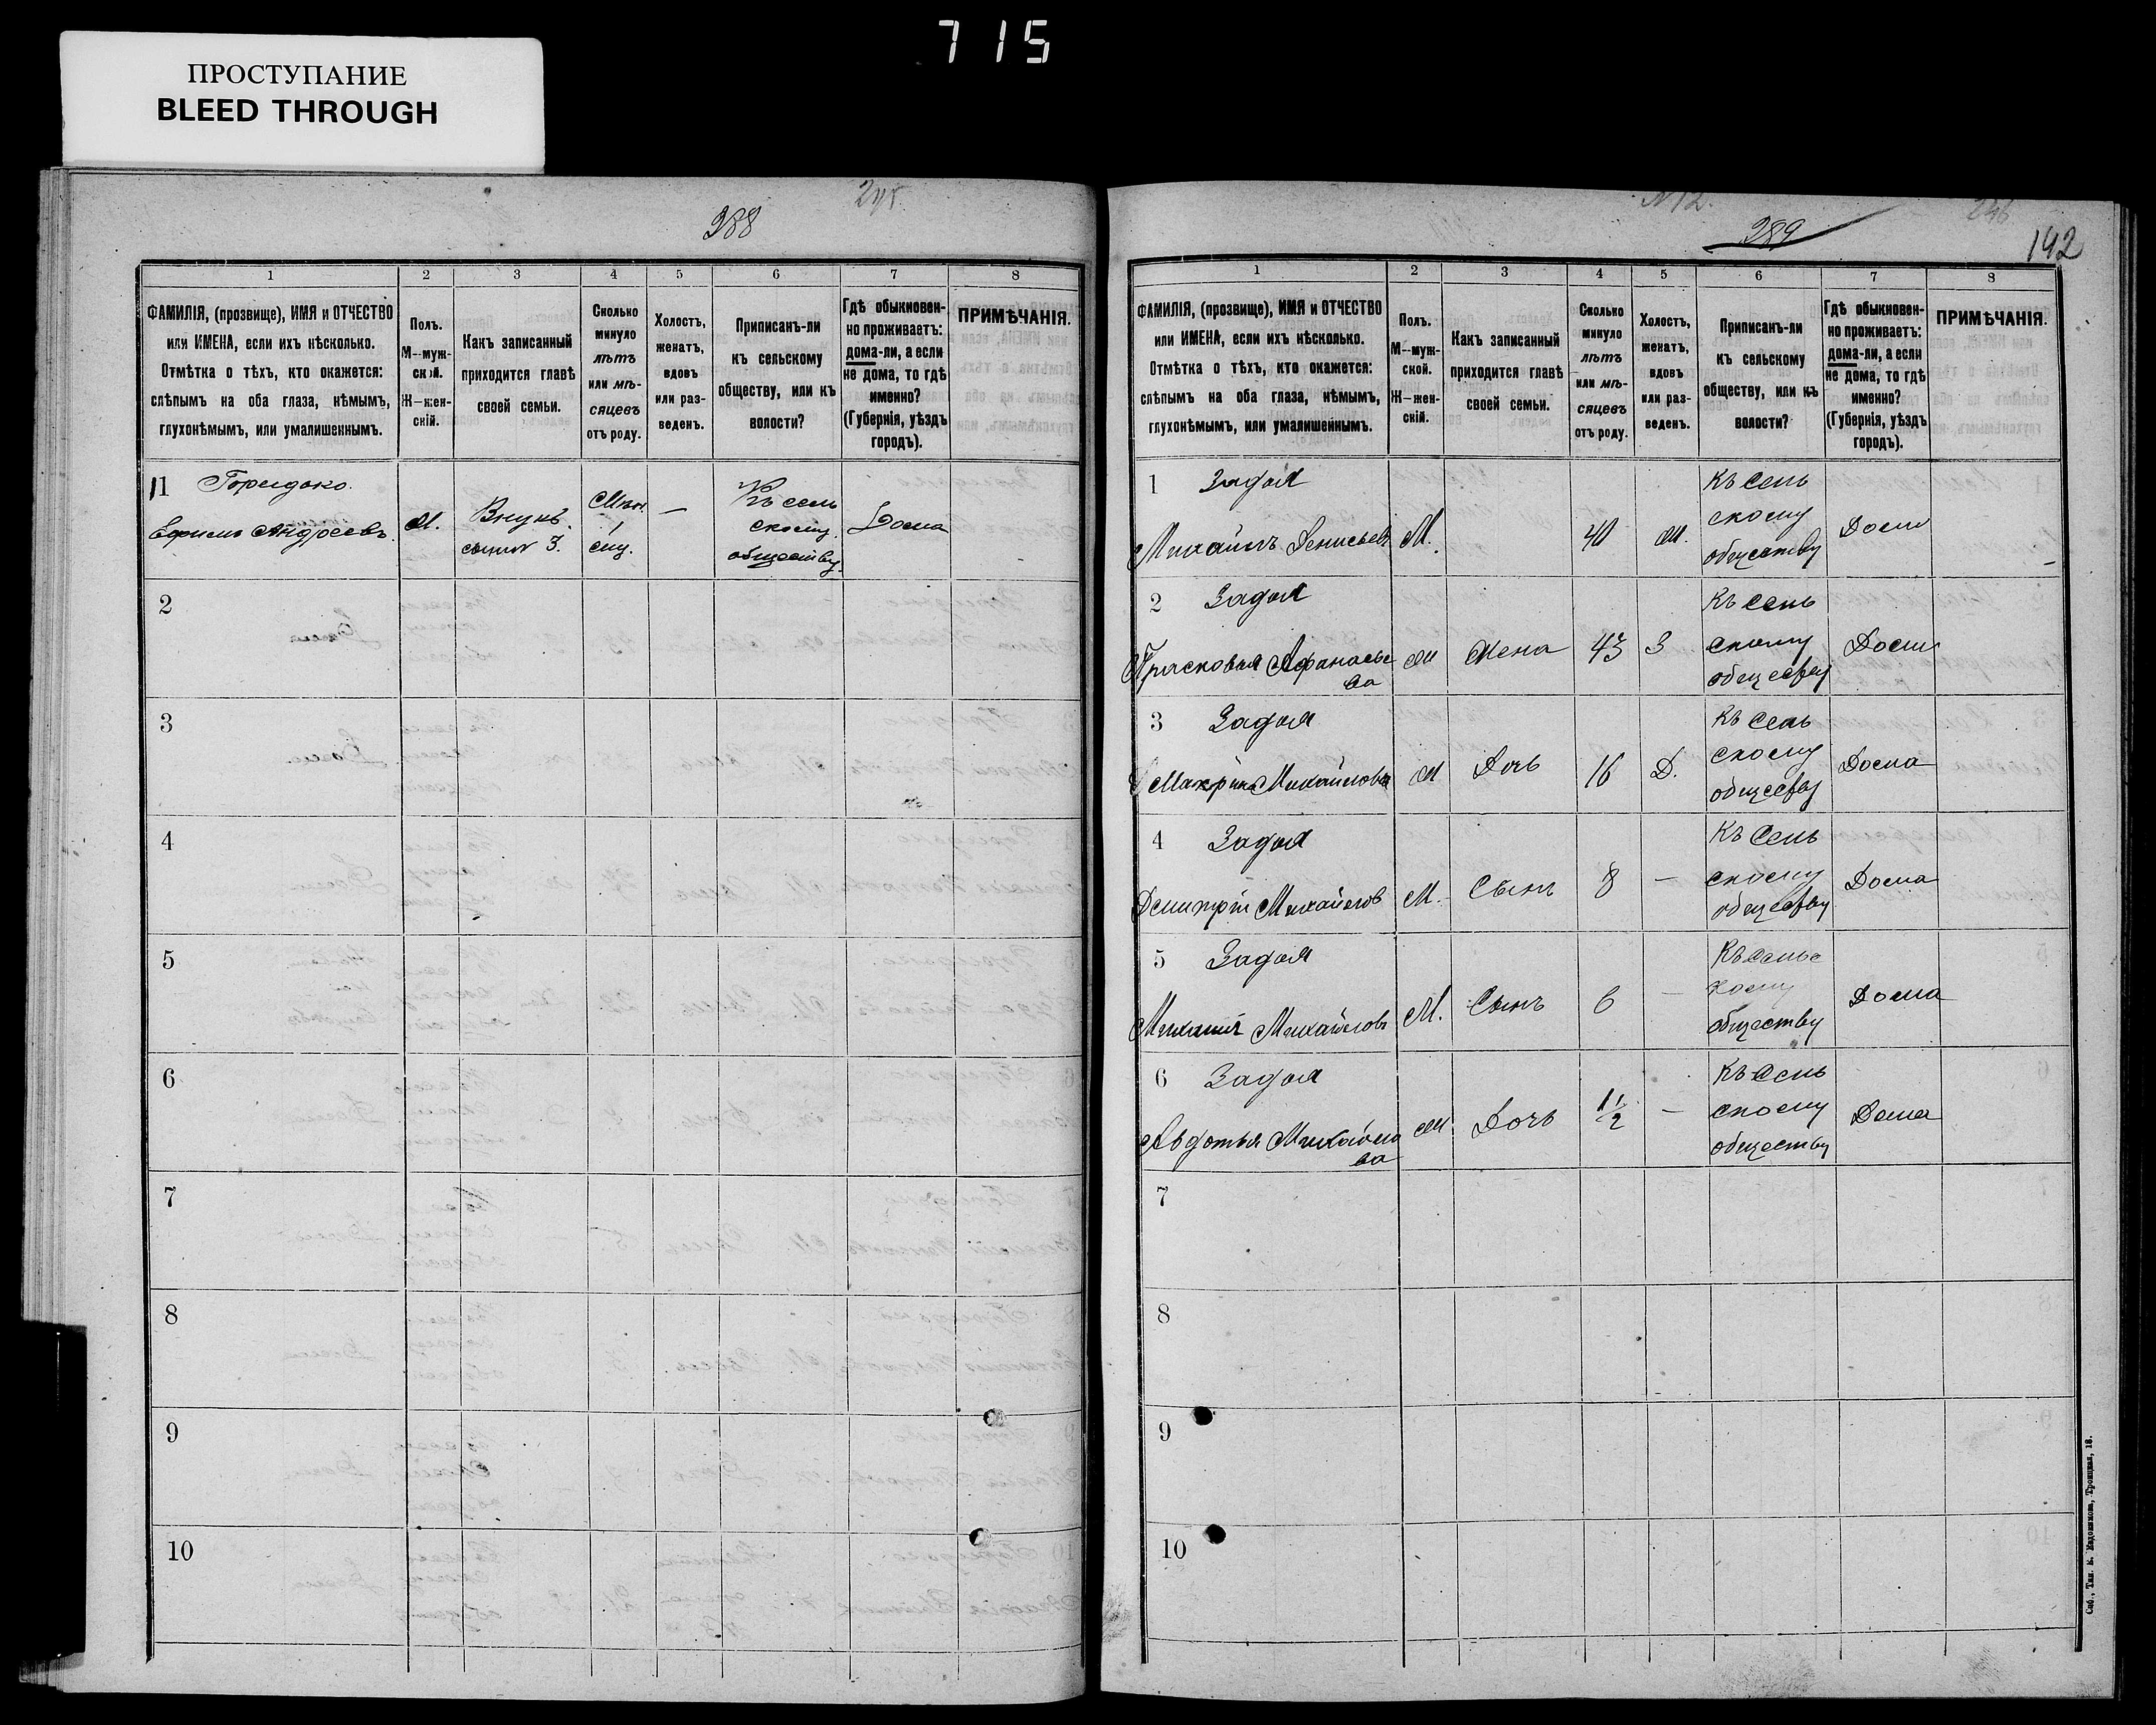 715
ПРОСТУПАНИЕ
BLEED THROUGH
388
1 2 3 4 5 6 7 8
ФАМИЛІЯ, (прозвище), ИМЯ и ОТЧЕСТВО
или ИМЕНА, если ихъ нѣсколько.
Отмѣтка о тѣхъ, кто окажется:
слѣпымъ на оба глаза, нѣмымъ,
глухонѣмымъ, или умалишеннымъ.
Полъ.
М--муж-
ской.
Ж-жен-
скій.
Какъ записанный
приходится главѣ
своей семьи.
Сколько
минуло
лѣтъ
или мѣ-
сяцевъ
отъ роду.
Холостъ,
женатъ,
вдовъ
или раз-
веденъ.
Приписанъ-ли
къ сельскому
обществу, или къ
волости?
Гдѣ обыкновен-
но проживаетъ:
дома-ли, а если
не дома, то гдѣ
именно?
(Губернія, уѣздъ
городъ).
ПРИМѢЧАНІЯ.
1
Андреевъ М. Внукъ — Къ сель
скому
обществу Дома
2
3
4
5
6
7
8
9
10
№12.
246
389
192
1 2 3 4 5 6 7 8
ФАМИЛІЯ, (прозвище), ИМЯ и ОТЧЕСТВО
или ИМЕНА, если ихъ нѣсколько.
Отмѣтка о тѣхъ, кто окажется:
слѣпымъ на оба глаза, нѣмымъ,
глухонѣмымъ, или умалишеннымъ.
Полъ.
М--муж-
ской.
Ж-жен-
скій.
Какъ записанный
приходится главѣ
своей семьи.
Сколько
минуло
лѣтъ
или мѣ-
сяцевъ
отъ роду.
Холостъ,
женатъ,
вдовъ
или раз-
веденъ.
Приписанъ-ли
къ сельскому
обществу, или къ
волости?
Гдѣ обыкновен-
но проживаетъ:
дома-ли, а если
не дома, то гдѣ
именно?
(Губернія, уѣздъ
городъ).
ПРИМѢЧАНІЯ.
1 Задоя
Михаилъ Денисьевъ М. 40 Къ сель
скому
обществу Дома
2 Задоя
Прасковья Афанасье
ва Жена 43 З Къ сель
скому
обществу Дома
3 Задоя
Михайлова Дочь 16 Д. Къ сель
скому
обществу Дома
4 Задоя
Дмитрій Михайлов М. Сынъ 8 — Къ сель
скому
обществу Дома
5 Задоя
Михаилъ Михайловъ М. Сынъ 6 — Къ сельс
кому
обществу Дома
6 Задоя
Авдотья Михайло
ва Дочь 1½ — Къ сель
скому
обществу Дома
7
8
9
10